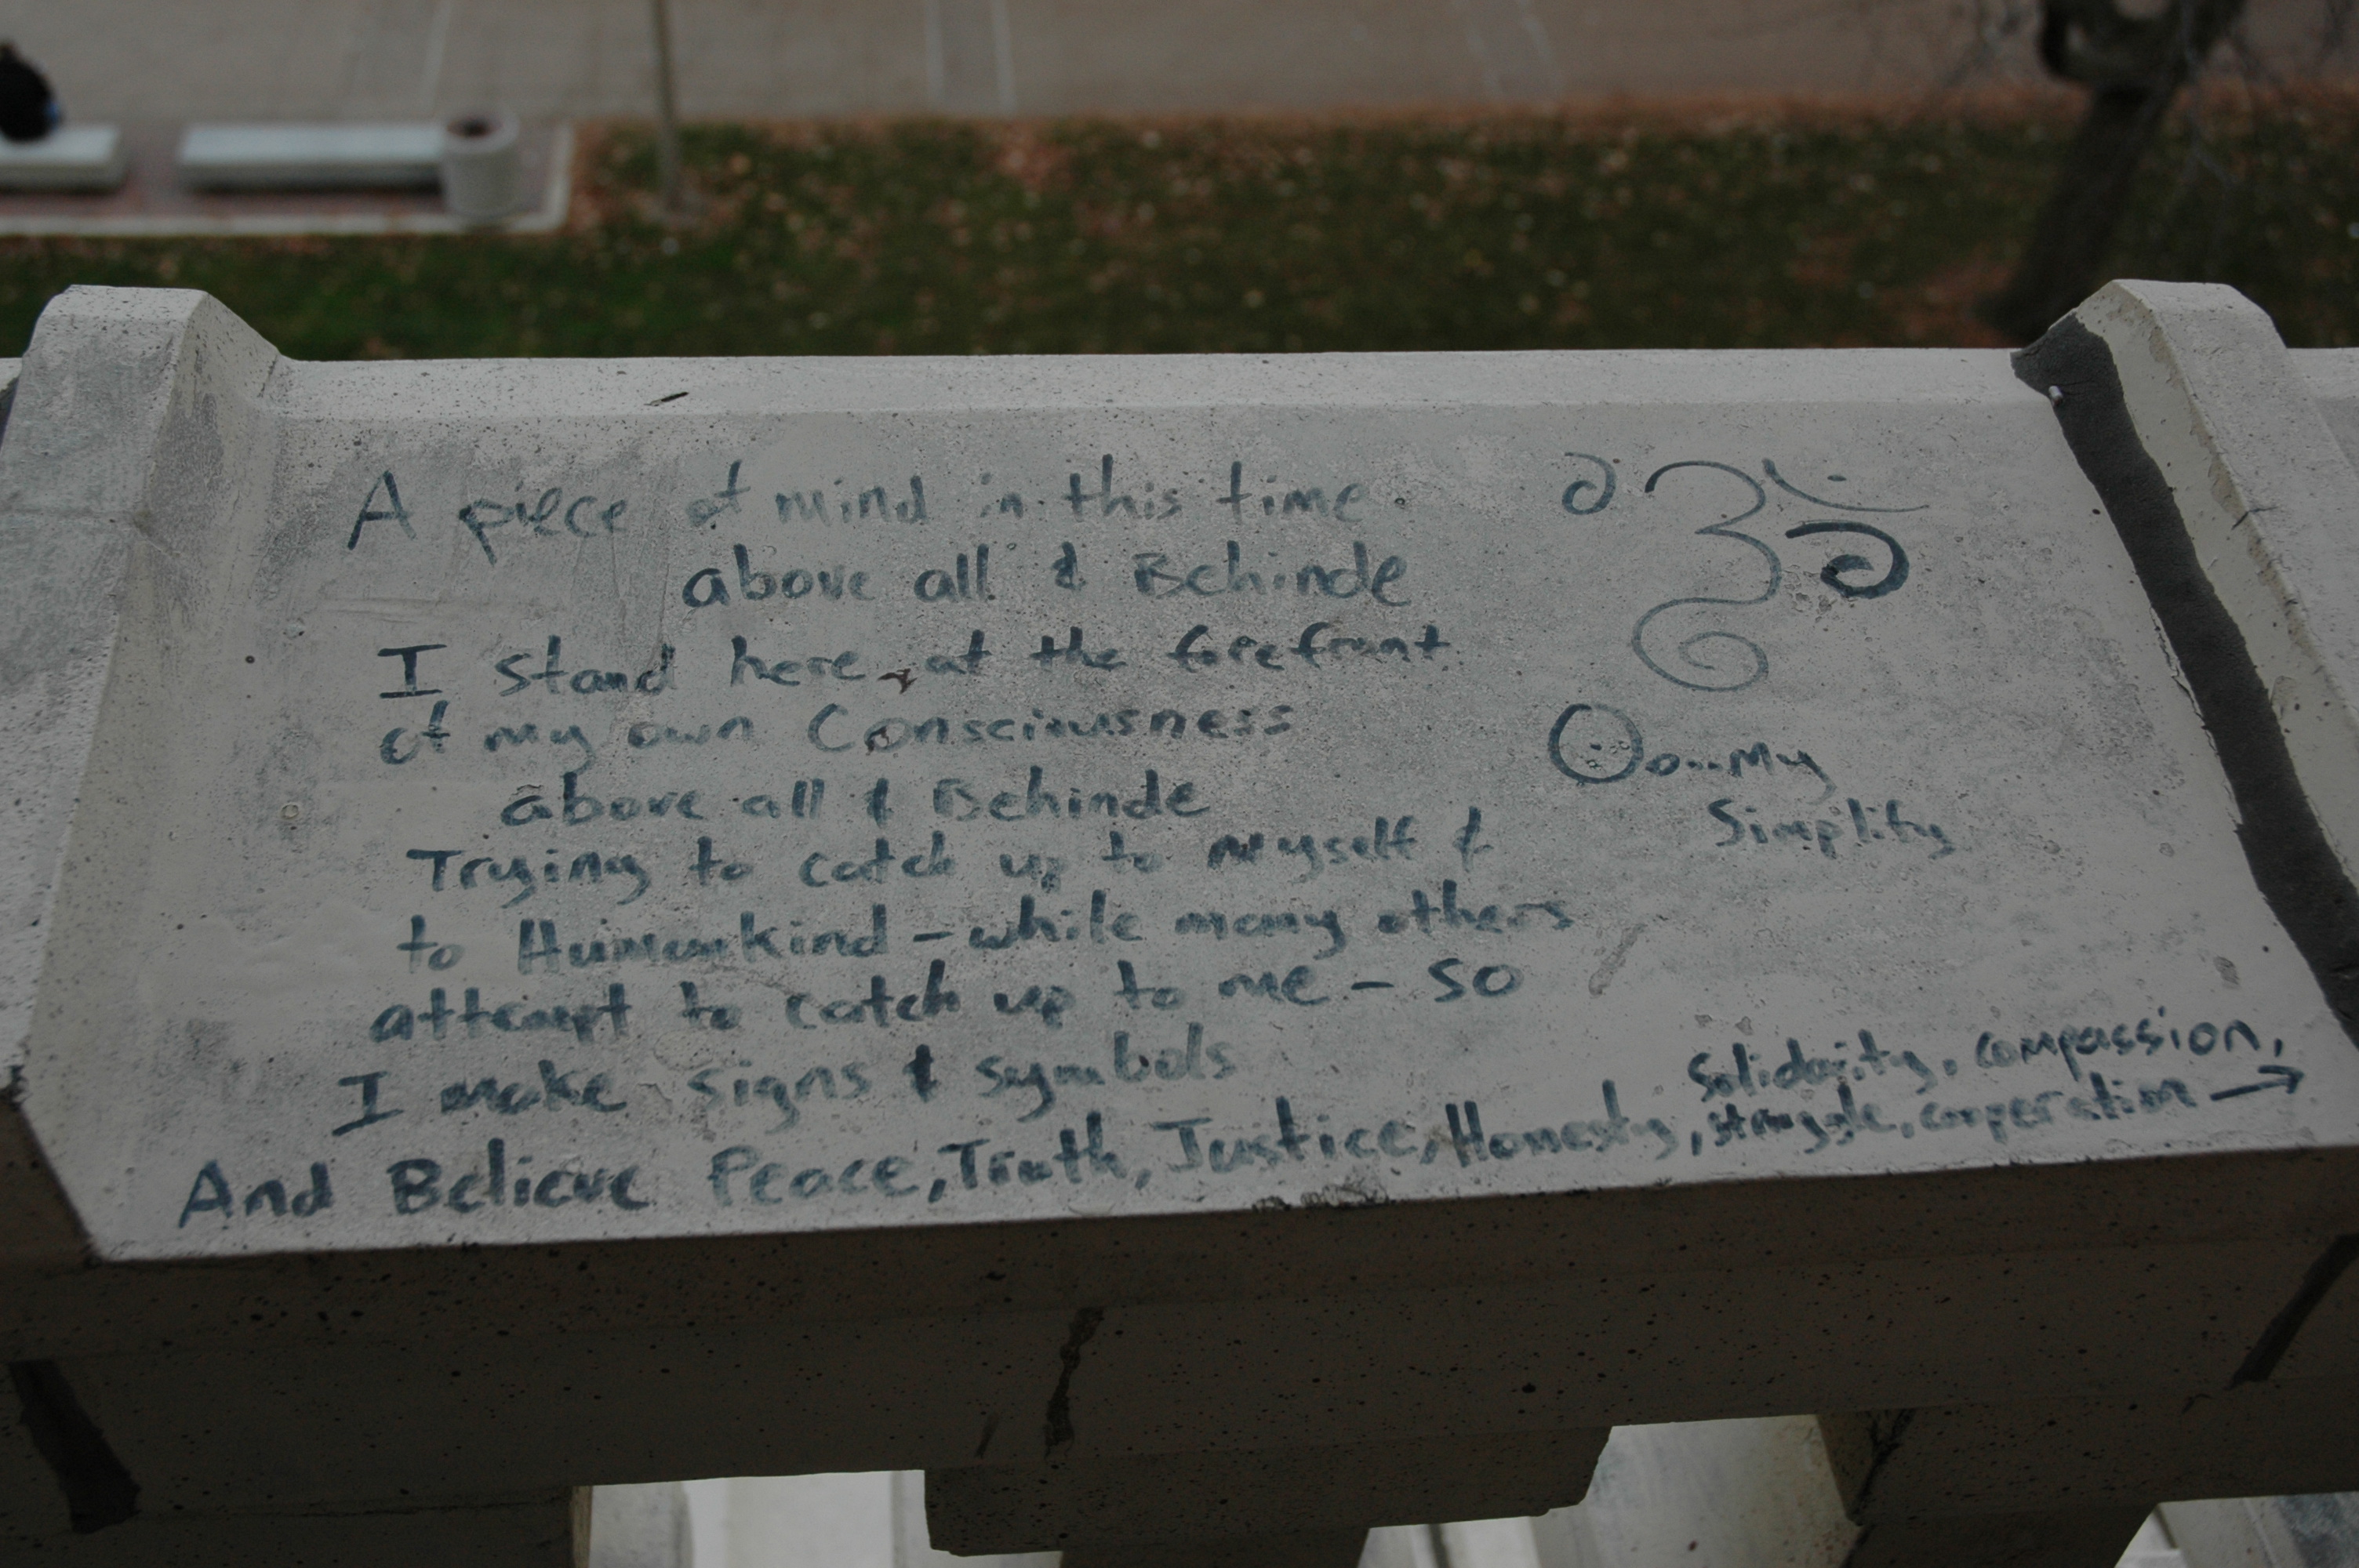 A piece of mind in this time.
above all & Behinde
I stand here, at the forefront
of my own Consciousness
above all & Behinde
Trying to catch up to myself &
to Humankind - while many others
attempt to catch up to me - so
I make signs & symbols
And Believe Peace, Truth, Justice, Honesty, struggle, cooperation →
Solidarity, compassion,
ॐ
Simplify